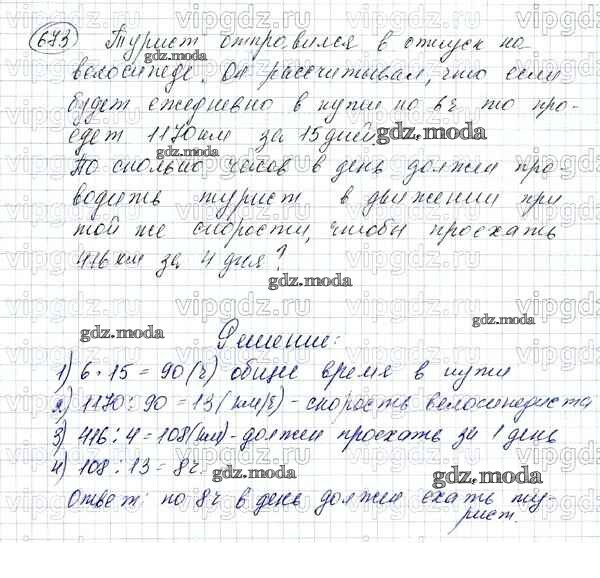 673 Турист отправился в отпуск на
велосипеде. Он рассчитывал, что если
будет ежедневно в пути по 6ч то про-
едет 1170 км за 15 дней.
По сколько часов в день должен про-
водить турист в движении при
той же скорости, чтобы проехать
416 км за 4 дня?
Решение:
1) 6 · 15 = 90 (ч) общее время в пути
2) 1170 : 90 = 13 (км/ч) - скорость велосипедиста
3) 416 : 4 = 108 (км) - должен проехать за 1 день
4) 108 : 13 = 8ч.
Ответ: по 8ч в день должен ехать ту-
рист.
gdz.moda
vipgdz.ru